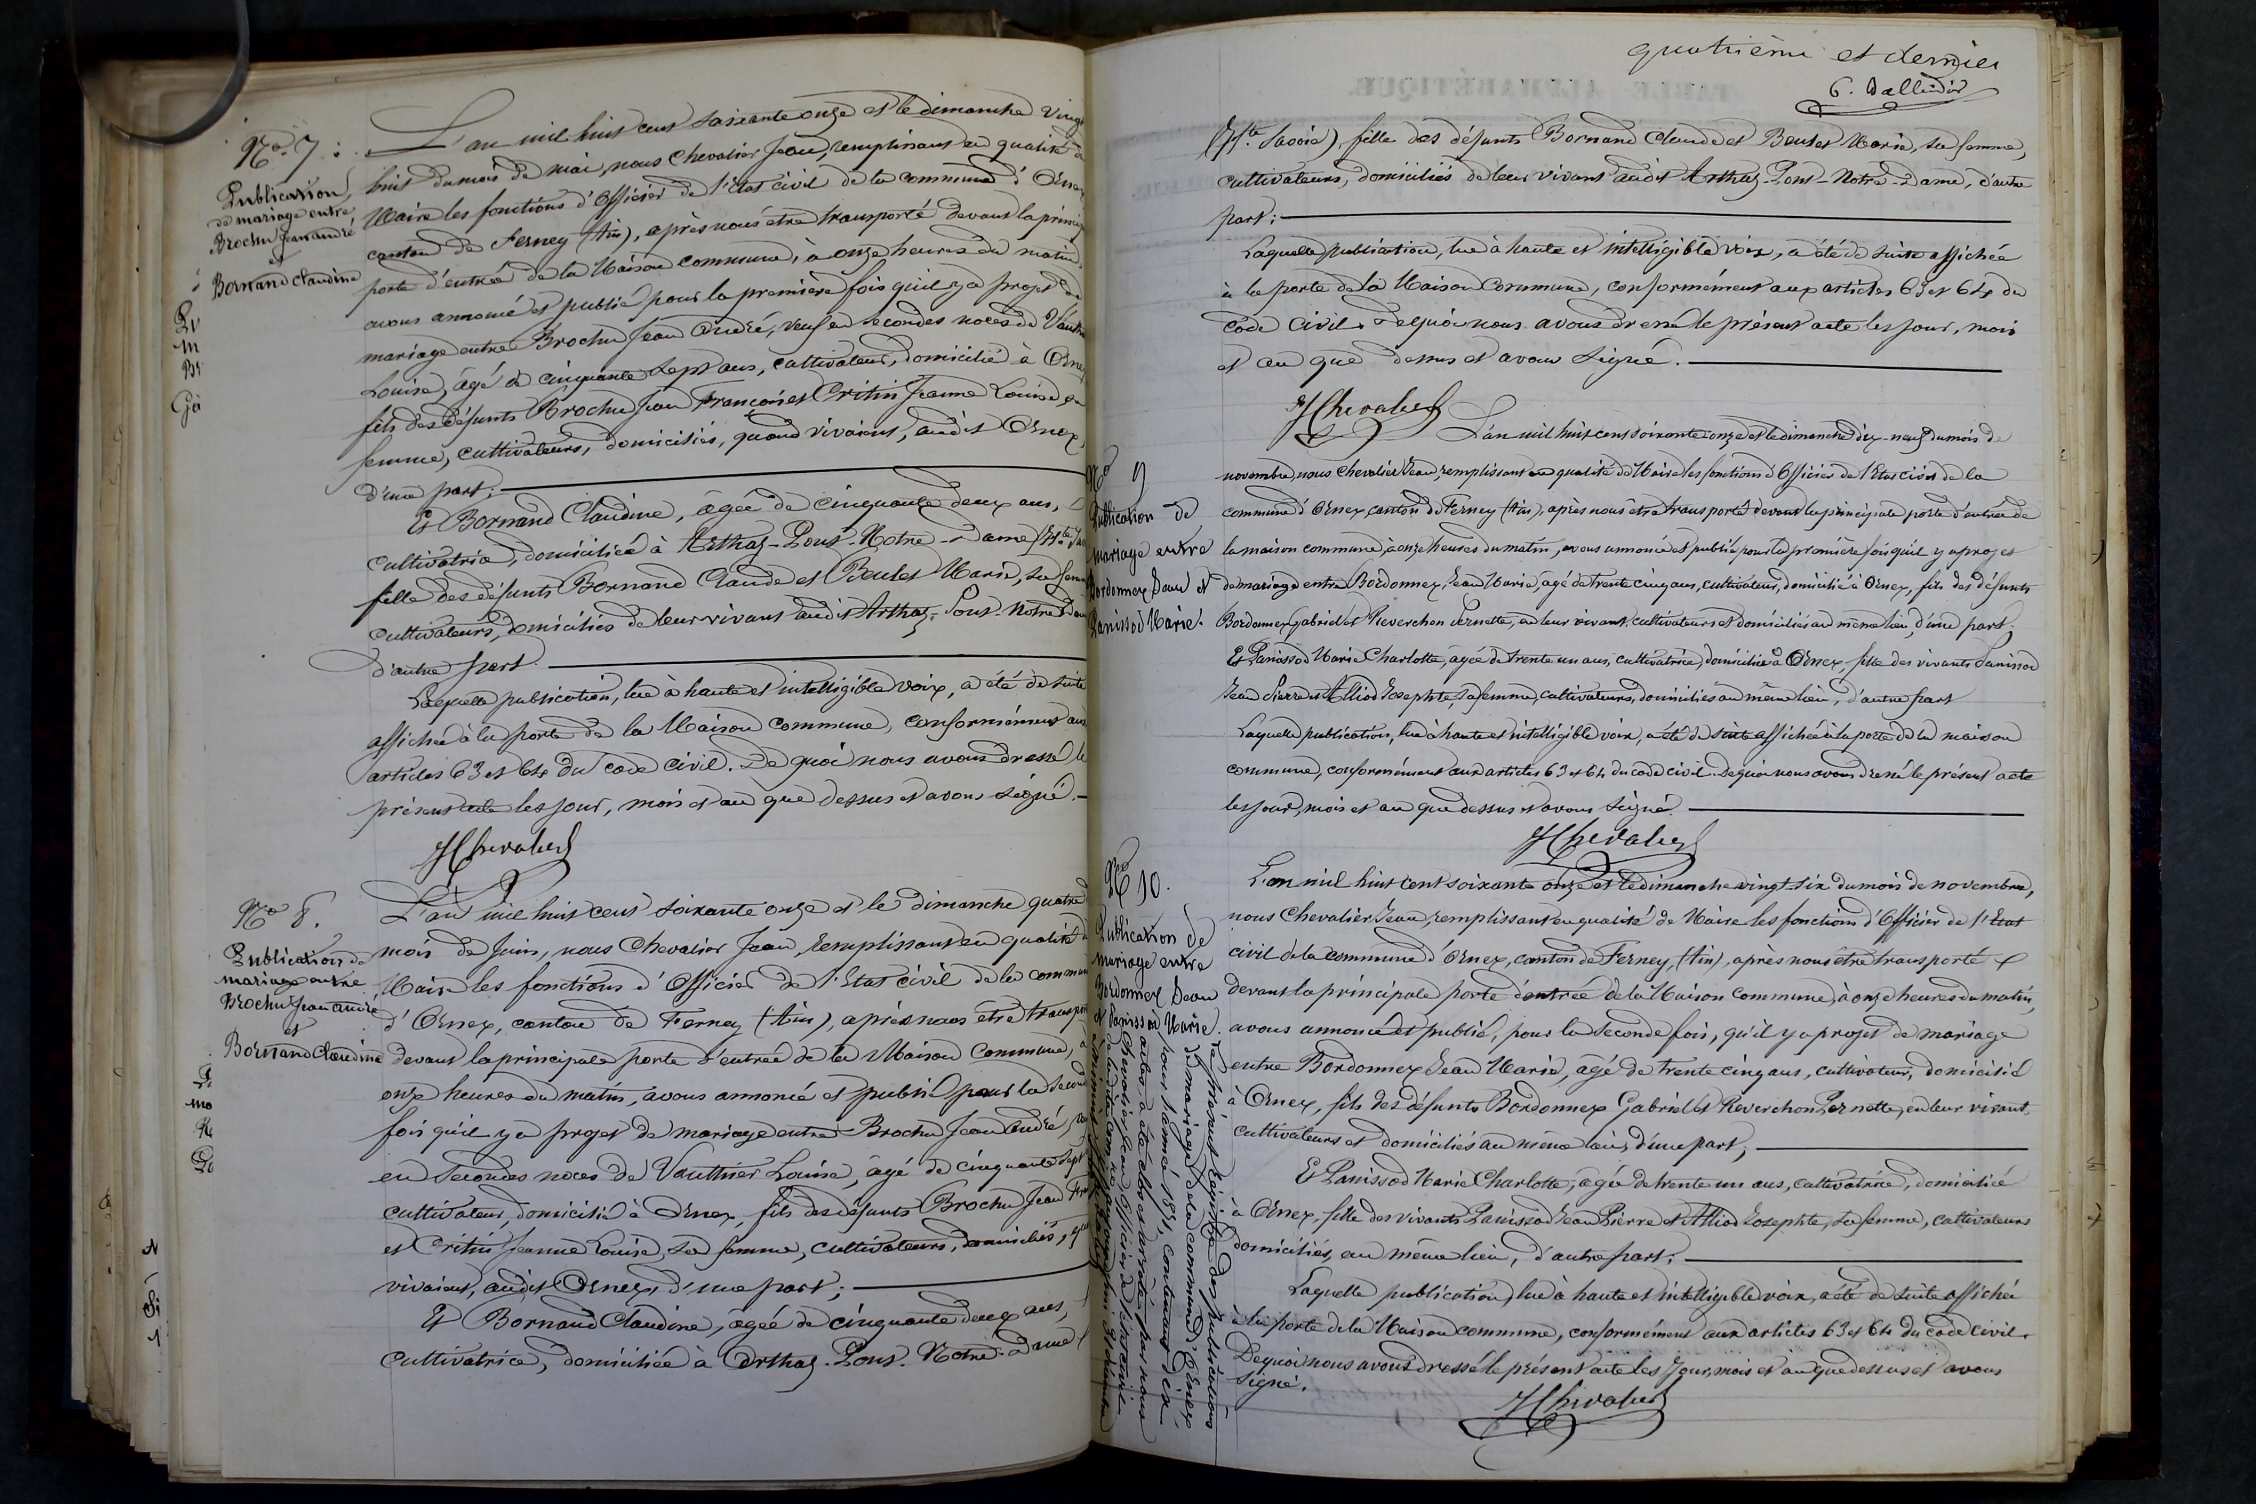 No. 7.
Publication
de mariage entre
Brochu Jean andré
et
Bornand Claudine
L'an mil huit cent soixante onze et le dimanche vingt
huit du mois de mai, nous Chevalier Jean, remplissant en qualité de
Maire les fonctions d'Officier de l'Etat civil de la commune d'Ornex
canton de Ferney (Ain), après nous être transporté devant la princip
porte d'entrée de la Maison commune, à onze heures du matin,
avons annoncé et publié pour la première fois qu'il y a projet de
mariage entre Brochu Jean André, veuf en secondes noces de Vauthi
Louise, âgé de cinquante sept ans, cultivateur, domicilié à Ornex
fils des défunts Brochu Jean François et Critin Jeanne Louise, sa
femme, cultivateurs, domiciliés, quand vivaient, audit Ornex,
d'une part;
Et Bornand Claudine, âgée de cinquante deux ans,
cultivatrice, domiciliée à Arthaz-Pont-Notre-Dame (Hte
fille des défunts Bornand Claude et Boulet Marie, sa fem
cultivateurs, domiciliés de leur vivant audit Arthaz-Pont-Notre Dame
d'autre part.
Laquelle publication, lue à haute et intelligible voix, a été de suite
affichée à la porte de la Maison commune, conformément aux
articles 63 et 64 du code civil. De quoi nous avons dressé le
présent acte les jour, mois et an que dessus et avons signé.
JChevalier
No 8.
Publication de
mariage entre
Brochu Jean André
et
Bornand Claudine
L'an mil huit cent soixante onze et le dimanche quatre
mois de Juin, nous Chevalier Jean, remplissant en qualité d
Maire les fonctions d'Officier de l'Etat civil de la commun
d'Ornex, canton de Ferney (Ain), après nous être transpor
devant la principale porte d'entrée de la Maison Commune, à
onze heures du matin, avons annoncé et publié pour la second
fois qu'il y a projet de mariage entre Brochu Jean André,
en secondes noces de Vauthier Louise, âgé de cinquante sept
cultivateur, domicilié à Ornex, fils des défunts Brochu Jean Fra
et Critin Jeanne Louise, sa femme, cultivateurs, domiciliés, qua
vivaient, audit Ornex, d'une part;
Et Bornand Claudine, âgée de cinquante deux ans,
cultivatrice, domiciliée à Arthaz-Pont-Notre-Dame (
quatrième et dernier
(Hte. Savoie), fille des défunts Bornand Claude et Boulet Marie, sa femme,
cultivateurs, domiciliés de leur vivant audit Arthaz-Pont-Notre-Dame, d'autre
part;
Laquelle publication, lue à haute et intelligible voix, a été de suite affichée
à la porte de la Maison Commune, conformément aux articles 63 et 64 du
code civil. De quoi nous avons dressé le présent acte les jour, mois
et an que dessus et avons signé.
JChevalier
No 9
Publication de
mariage entre
Bordonnex Jean et
Panissod Marie.
L'an mil huit cent soixante onze et le dimanche dix-neuf du mois de
novembre, nous Chevalier Jean, remplissant en qualité de Maire les fonctions d'Officier de l'Etat civil de la
commune d'Ornex canton de Ferney (Ain), après nous être transporté devant la principale porte d'entrée de
la maison commune, à onze heures du matin, avons annoncé et publié pour la première fois qu'il y a projet
de mariage entre Bordonnex Jean Marie, âgé de trente cinq ans, cultivateur, domicilié à Ornex, fils des défunts
Bordonnex Gabriel et Reverchon Pernette, en leur vivant cultivateurs et domiciliés au même lieu, d'une part,
Et Panissod Marie Charlotte, âgée de trente un ans, cultivatrice, domiciliée à Ornex, fille des vivants Panissod
Jean Pierre et Alliod Josephte, sa femme, cultivateurs, domiciliés au même lieu, d'autre part
Laquelle publication, lue à haute et intelligible voix, a été de suite affichée à la porte de la maison
commune, conformément aux articles 63 et 64 du code civil. De quoi nous avons dressé le présent acte
les jour, mois et an que dessus et avons signé.
JChevalier
No 10.
Publication de
mariage entre
Bordonnex Jean
et Panissod Marie.
L'an mil huit cent soixante onze et le dimanche vingt six du mois de novembre,
nous Chevalier Jean, remplissant en qualité de Maire les fonctions d'Officier de l'Etat
civil de la commune d'Ornex, canton de Ferney, (Ain), après nous être transporté
devant la principale porte d'entrée de la Maison Commune, à onze heures du matin,
avons annoncé et publié, pour la seconde fois, qu'il y a projet de mariage
entre Bordonnex Jean Marie, âgé de trente cinq ans, cultivateur, domicilié
à Ornex, fils des défunts Bordonnex Gabriel et Reverchon Pernette, en leur vivant,
cultivateurs et domiciliés au même lieu, d'une part,
Et Panissod Marie Charlotte, âgée de trente un ans, cultivatrice, domiciliée
à Ornex, fille des vivants Panissod Jean Pierre et Alliod Josephte, sa femme, cultivateurs
domiciliés, au même lieu, d'autre part;
Laquelle publication, lue à haute et intelligible voix, a été de suite affichée
à la porte de la Maison commune, conformément aux articles 63 et 64 du code civil.
De quoi nous avons dressé le présent acte les jour, mois et an que dessus et avons
signé.
JChevalier
Le présent registre des publications
de mariage de la commune d'Ornex,
pour l'année 1871, contenant dix
actes, a été clos et arrêté par nous
Chevalier Jean, Officier de l'Etat civil